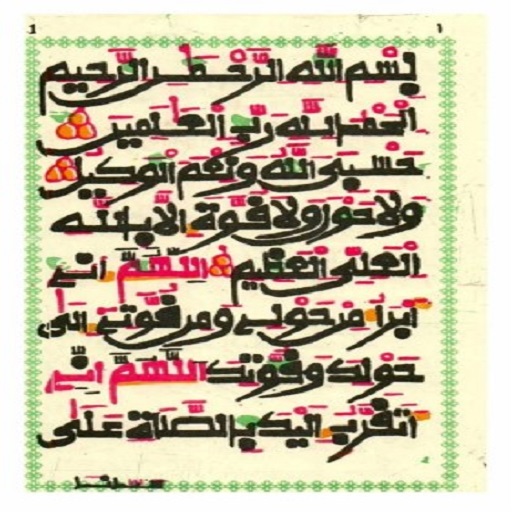 1 ١
بِسْمِ اللَّهِ الرَّحْمَٰنِ الرَّحِيمِ
الْحَمْدُ لِلَّهِ رَبِّ الْعَٰلَمِينَ
حَسْبِيَ اللَّهُ وَنِعْمَ الْوَكِيلُ
وَلَا حَوْلَ وَلَا قُوَّةَ إِلَّا بِاللَّهِ
الْعَلِيِّ الْعَظِيمِ اللَّهُمَّ إِنِّي
أَبْرَأُ مِنْ حَوْلِي وَمِنْ قُوَّتِي إِلَى
حَوْلِكَ وَقُوَّتِكَ اللَّهُمَّ إِنِّي
أَتَقَرَّبُ إِلَيْكَ بِالصَّلَاةِ عَلَى